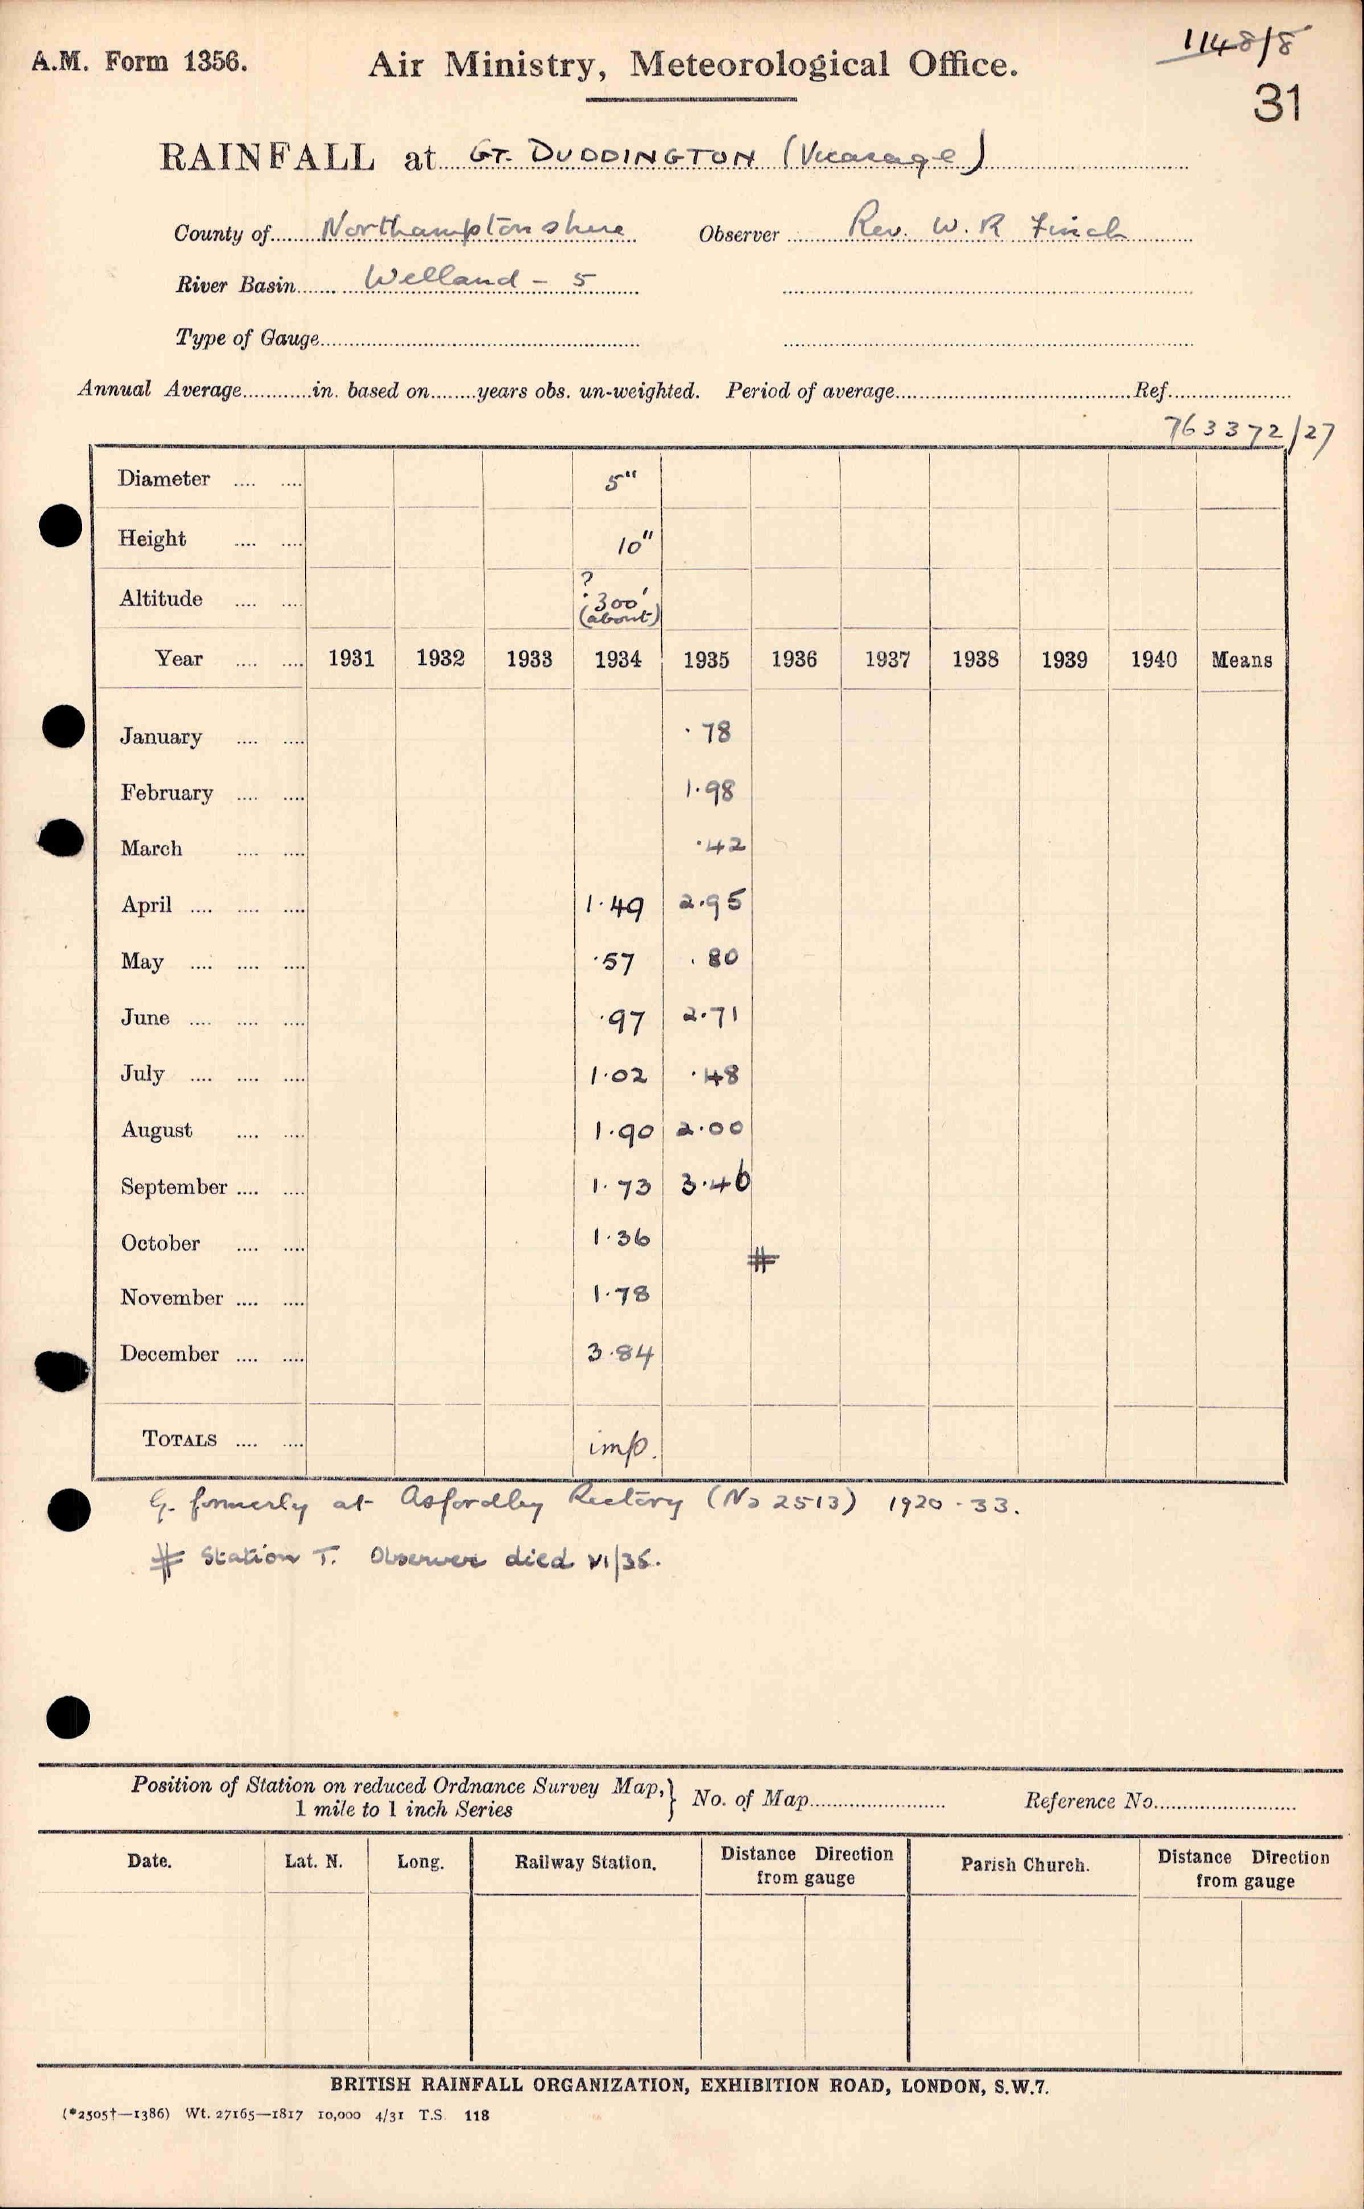 A.M. Form 1356. Air Ministry, Meteorological Office. 1148/8
31
RAINFALL at GT. DUDDINGTON (Vicarage)
County of Northamptonshire Observer Rev. W. R Finch
River Basin Welland - 5
Type of Gauge
Annual Average in. based on years obs. un-weighted. Period of average Ref.
763372/27
Diameter 5"
Height 10"
Altitude ? 300' (about)
Year 1931 1932 1933 1934 1935 1936 1937 1938 1939 1940 Means
January .78
February 1.98
March .42
April 1.49 2.95
May .57 .80
June .97 2.71
July 1.02 .48
August 1.90 2.00
September 1.73 3.46
October 1.36
#
November 1.78
December 3.84
TOTALS imp.
G. formerly at Asfordby Rectory (No 2513) 1920-33.
# Station T. Observer died VI/35.
Position of Station on reduced Ordnance Survey Map, } No. of Map Reference No.
1 mile to 1 inch Series
Date. Lat. N. Long. Railway Station. Distance Direction from gauge Parish Church. Distance Direction from gauge
BRITISH RAINFALL ORGANIZATION, EXHIBITION ROAD, LONDON, S.W.7.
(*2505†—1386) Wt. 27165—1817 10,000 4/31 T.S. 118